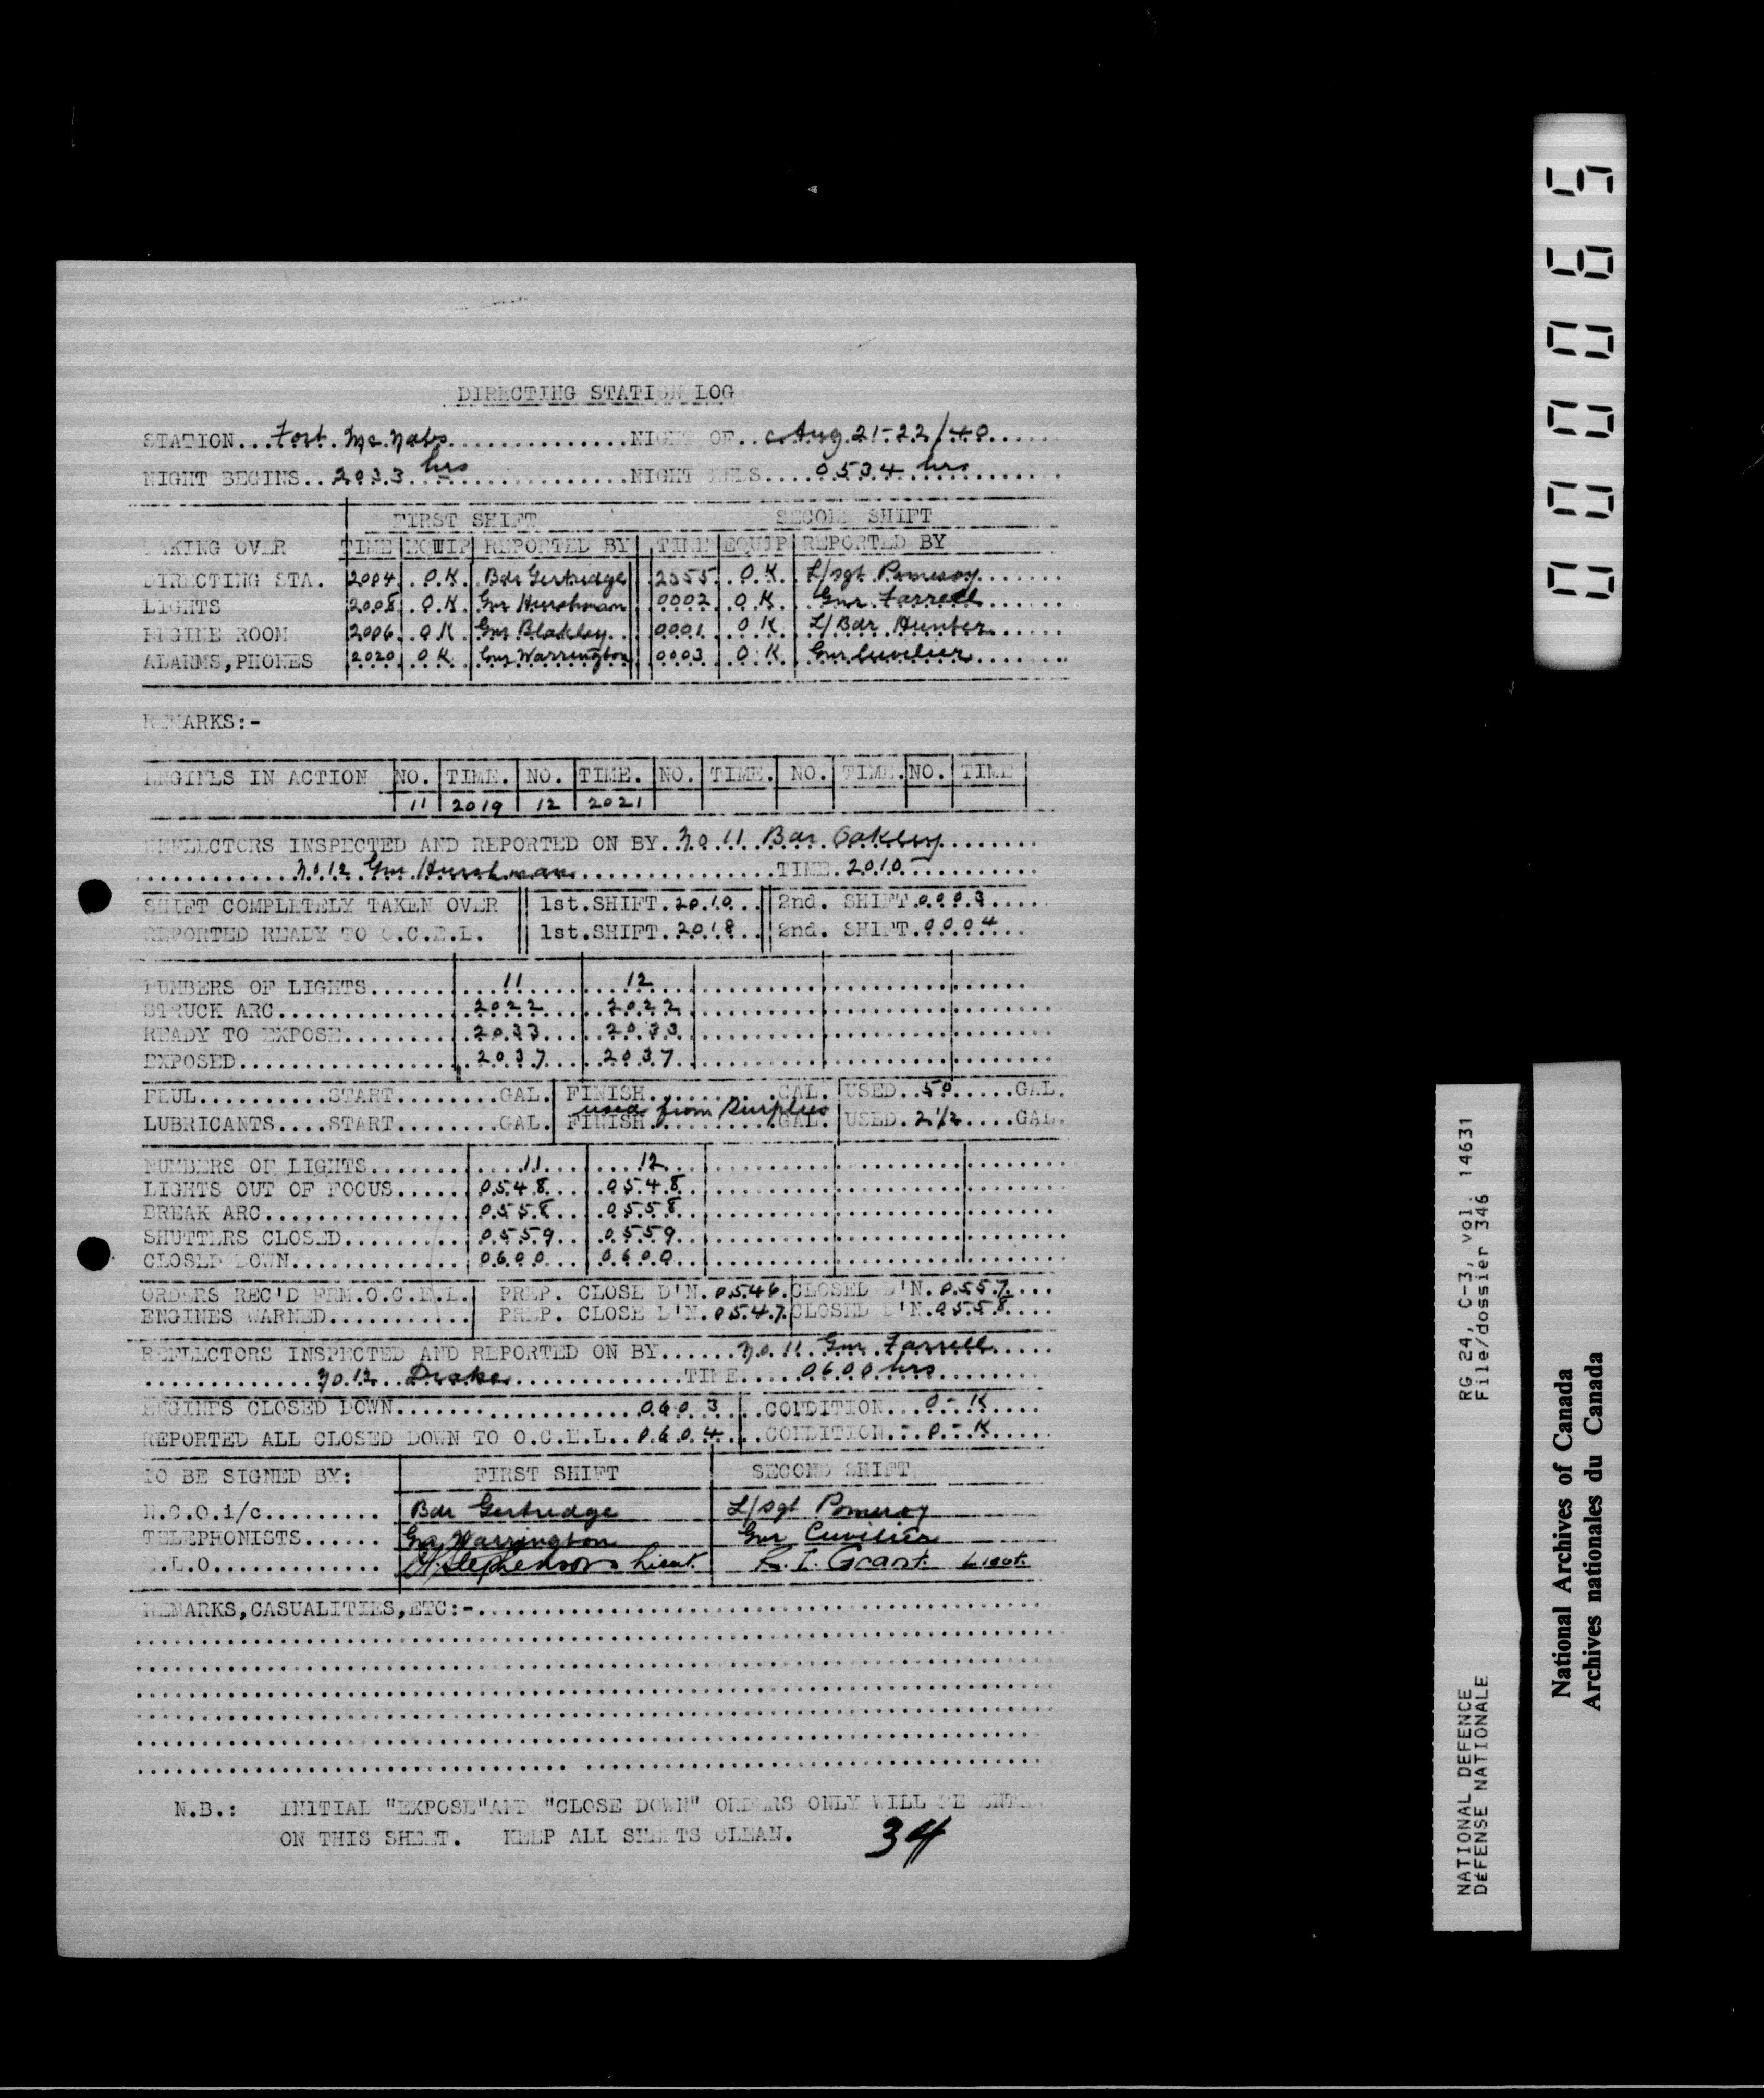 DIRECTING STATION LOG
STATION...Fort McNabs...............NIGHT OF..Aug.21-22/40......
NIGHT BEGINS..2033 hrs...............NIGHT ENDS....0534 hrs.......
FIRST SHIFT SECOND SHIFT
TAKING OVER TIME EQUIP REPORTED BY TIME EQUIP REPORTED BY
DIRECTING STA. 2004 O.K. Bdr Gertridge 2355 O.K. L/Sgt Pomeroy
LIGHTS 2008 O.K. Gnr Hurshman 0002 O.K Gnr Farrell
ENGINE ROOM 2006 O.K Gnr Blakley 0001 O K L/Bdr Hunter
ALARMS,PHONES 2020 O.K Gnr Warrington 0003 O.K Gnr Cuvilier
REMARKS:-
ENGINES IN ACTION NO. TIME. NO. TIME. NO. TIME. NO. TIME. NO. TIME
11 2019 12 2021
REFLECTORS INSPECTED AND REPORTED ON BY..No 11 Bdr. Oakley........
............No.12 Gnr Hurshman................TIME.2010...........
SHIFT COMPLETELY TAKEN OVER 1st.SHIFT.2010... 2nd. SHIFT.0003.....
REPORTED READY TO O.C.E.L. 1st.SHIFT.2018... 2nd. SHIFT.0004...
NUMBERS OF LIGHTS....... 11 12
STRUCK ARC.............. 2022 2022
READY TO EXPOSE......... 2033 2033
EXPOSED................. 2037 2037
FEUL..........START........GAL. FINISH..........GAL. USED..50.....GAL.
used from Surplus
LUBRICANTS....START........GAL. FINISH..........GAL. USED.2 1/2....GAL.
NUMBERS OF LIGHTS....... 11 12
LIGHTS OUT OF FOCUS..... 0548 0548
BREAK ARC............... 0558 0558
SHUTTERS CLOSED......... 0559 0559
CLOSED DOWN............. 0600 0600
ORDERS REC'D FRM.O.C.E.L. PREP. CLOSE D'N.0546. CLOSED D'N.0557....
ENGINES WARNED........... PREP. CLOSE D'N.0547. CLOSED D'N.0558....
REFLECTORS INSPECTED AND REPORTED ON BY......No.11 Gnr. Farrell.....
.............No.12 Drake.............TIME.....0600 hrs.........
ENGINES CLOSED DOWN..................0603 ..CONDITION...O-K....
REPORTED ALL CLOSED DOWN TO O.C.E.L..0604....CONDITION.-O-K.....
TO BE SIGNED BY: FIRST SHIFT SECOND SHIFT
N.C.O.i/c......... Bdr Gertridge L/Sgt Pomeroy
TELEPHONISTS...... Gnr Warrington Gnr Cuvilier
E.L.O............. Stephenson Lieut. R. I. Grant Lieut.
REMARKS,CASUALITIES,ETC:-
N.B.: INITIAL "EXPOSE"AND "CLOSE DOWN" ORDERS ONLY WILL BE
ON THIS SHEET. KEEP ALL SHEETS CLEAN.
34
000065
RG 24, C-3, vol. 14631
File/dossier 346
NATIONAL DEFENCE
DÉFENSE NATIONALE
National Archives of Canada
Archives nationales du Canada